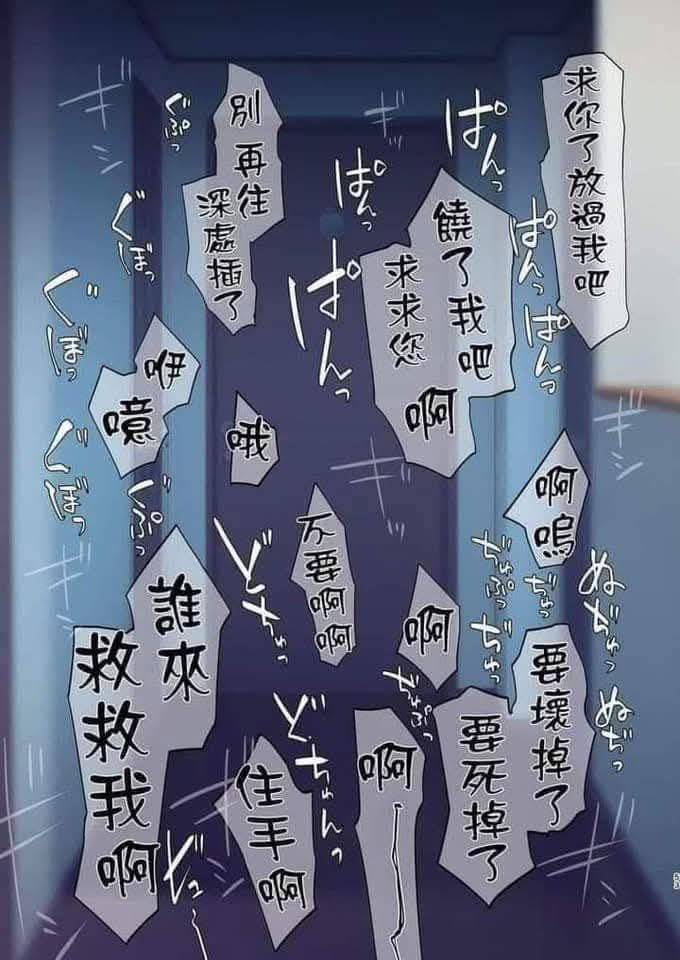 求你了放過我吧
ぱんっ
ぱんっ
ぱんっ
饒了我吧
求求您
啊
ぱんっ
ぱんっ
別再往
深處插了
ぐぷっ
ぐぼっ
ぐぼっ
ぐぼっ
ぐぷっ
咿
噫
哦
啊嗚
不要啊啊
啊
ぢゅぷっ
ぢゅっ
ぢゅっ
ぬぢゅっ
ぬぢっ
要壞掉了
要死掉了
ぢゅぷっ
どちゅっ
どちゅんっ
誰來
救救我啊
住手啊
啊
53